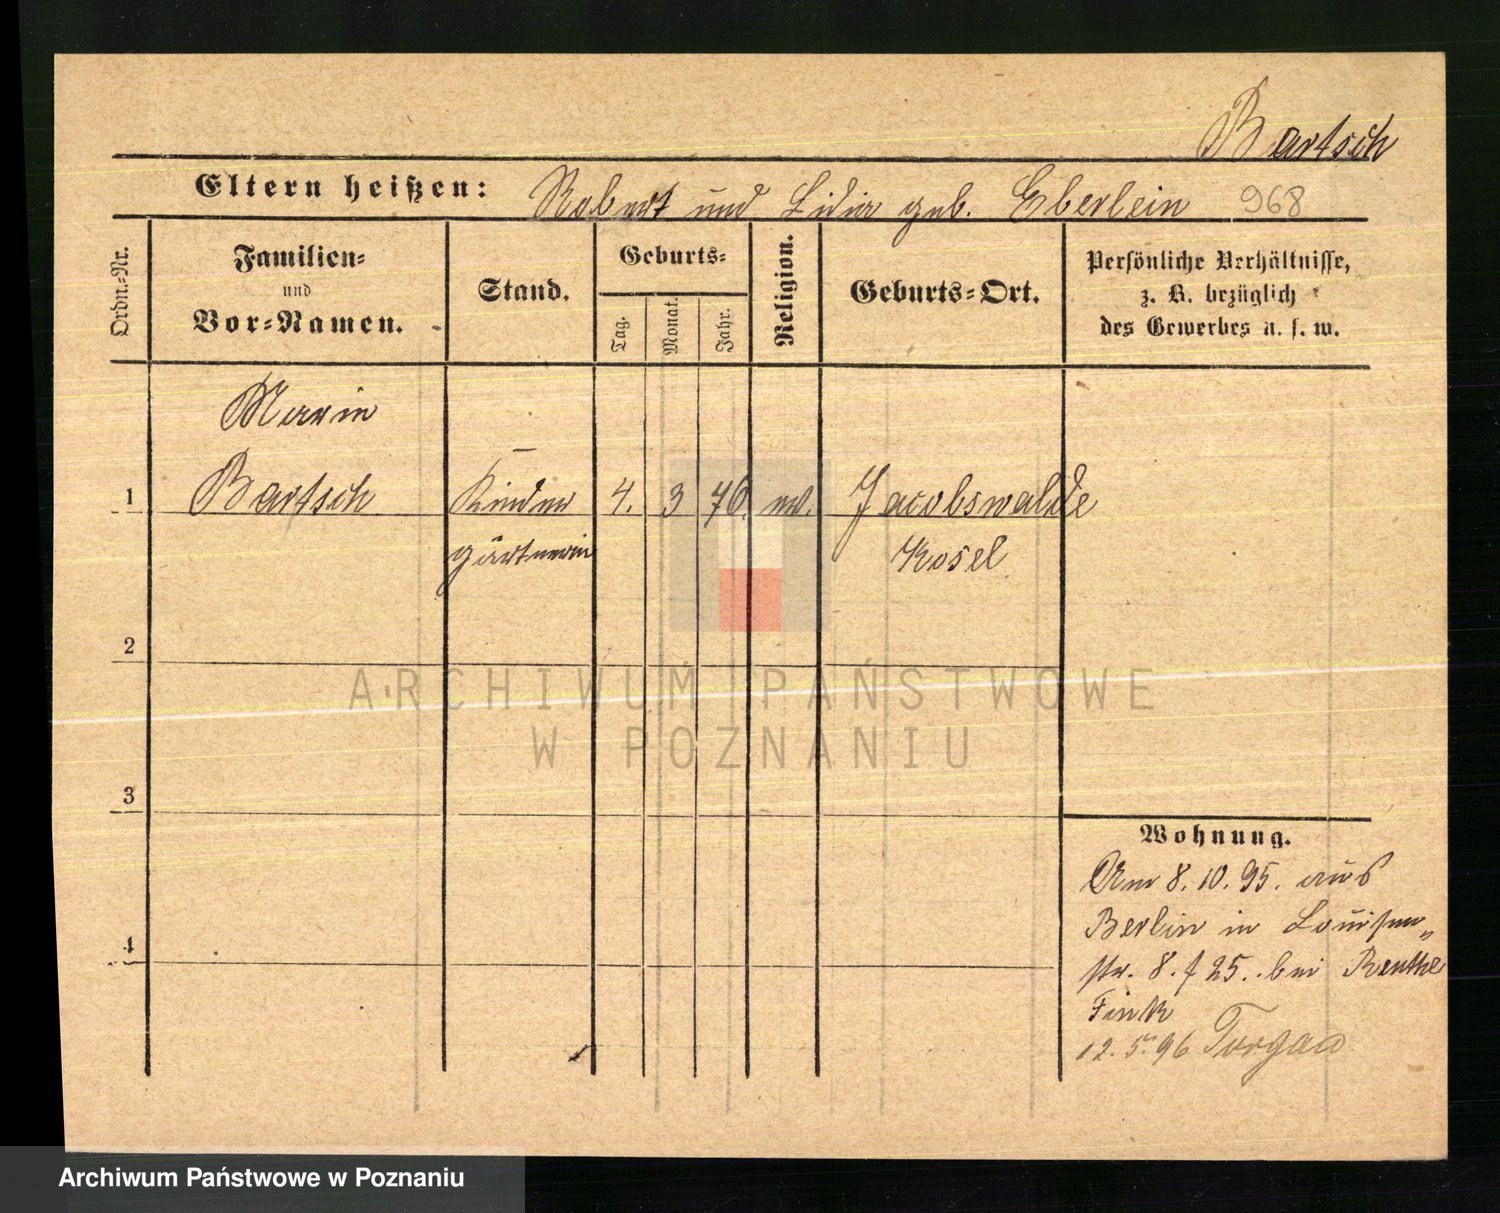 Bartsch
Eltern heißen: Robert und Lidia geb. Eberlein 968
Ordn.-Nr.
Familien-
und
Vor-Namen.
Stand.
Geburts-
Tag.
Monat.
Jahr.
Religion.
Geburts-Ort.
Persönliche Verhältnisse,
z. B. bezüglich
des Gewerbes u. s. w.
Marie
1 Bartsch Kinder 4. 3 76. ev. Jacobswalde
gärtnerin Kosel
2
3
4
Wohnung.
Am 8.10.95. aus
Berlin in Louisen„
str. 8. f 25. bei Renthe
Fink
12.5.96 Torgau
ARCHIWUM PAŃSTWOWE
W POZNANIU
Archiwum Państwowe w Poznaniu